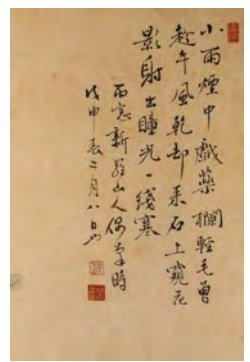 小雨煙中戲藥欄輕毛曾
趁午風乾却来石上窺花
影射出瞳光一綫寒
新羅山人偶時
戊申春二月八日